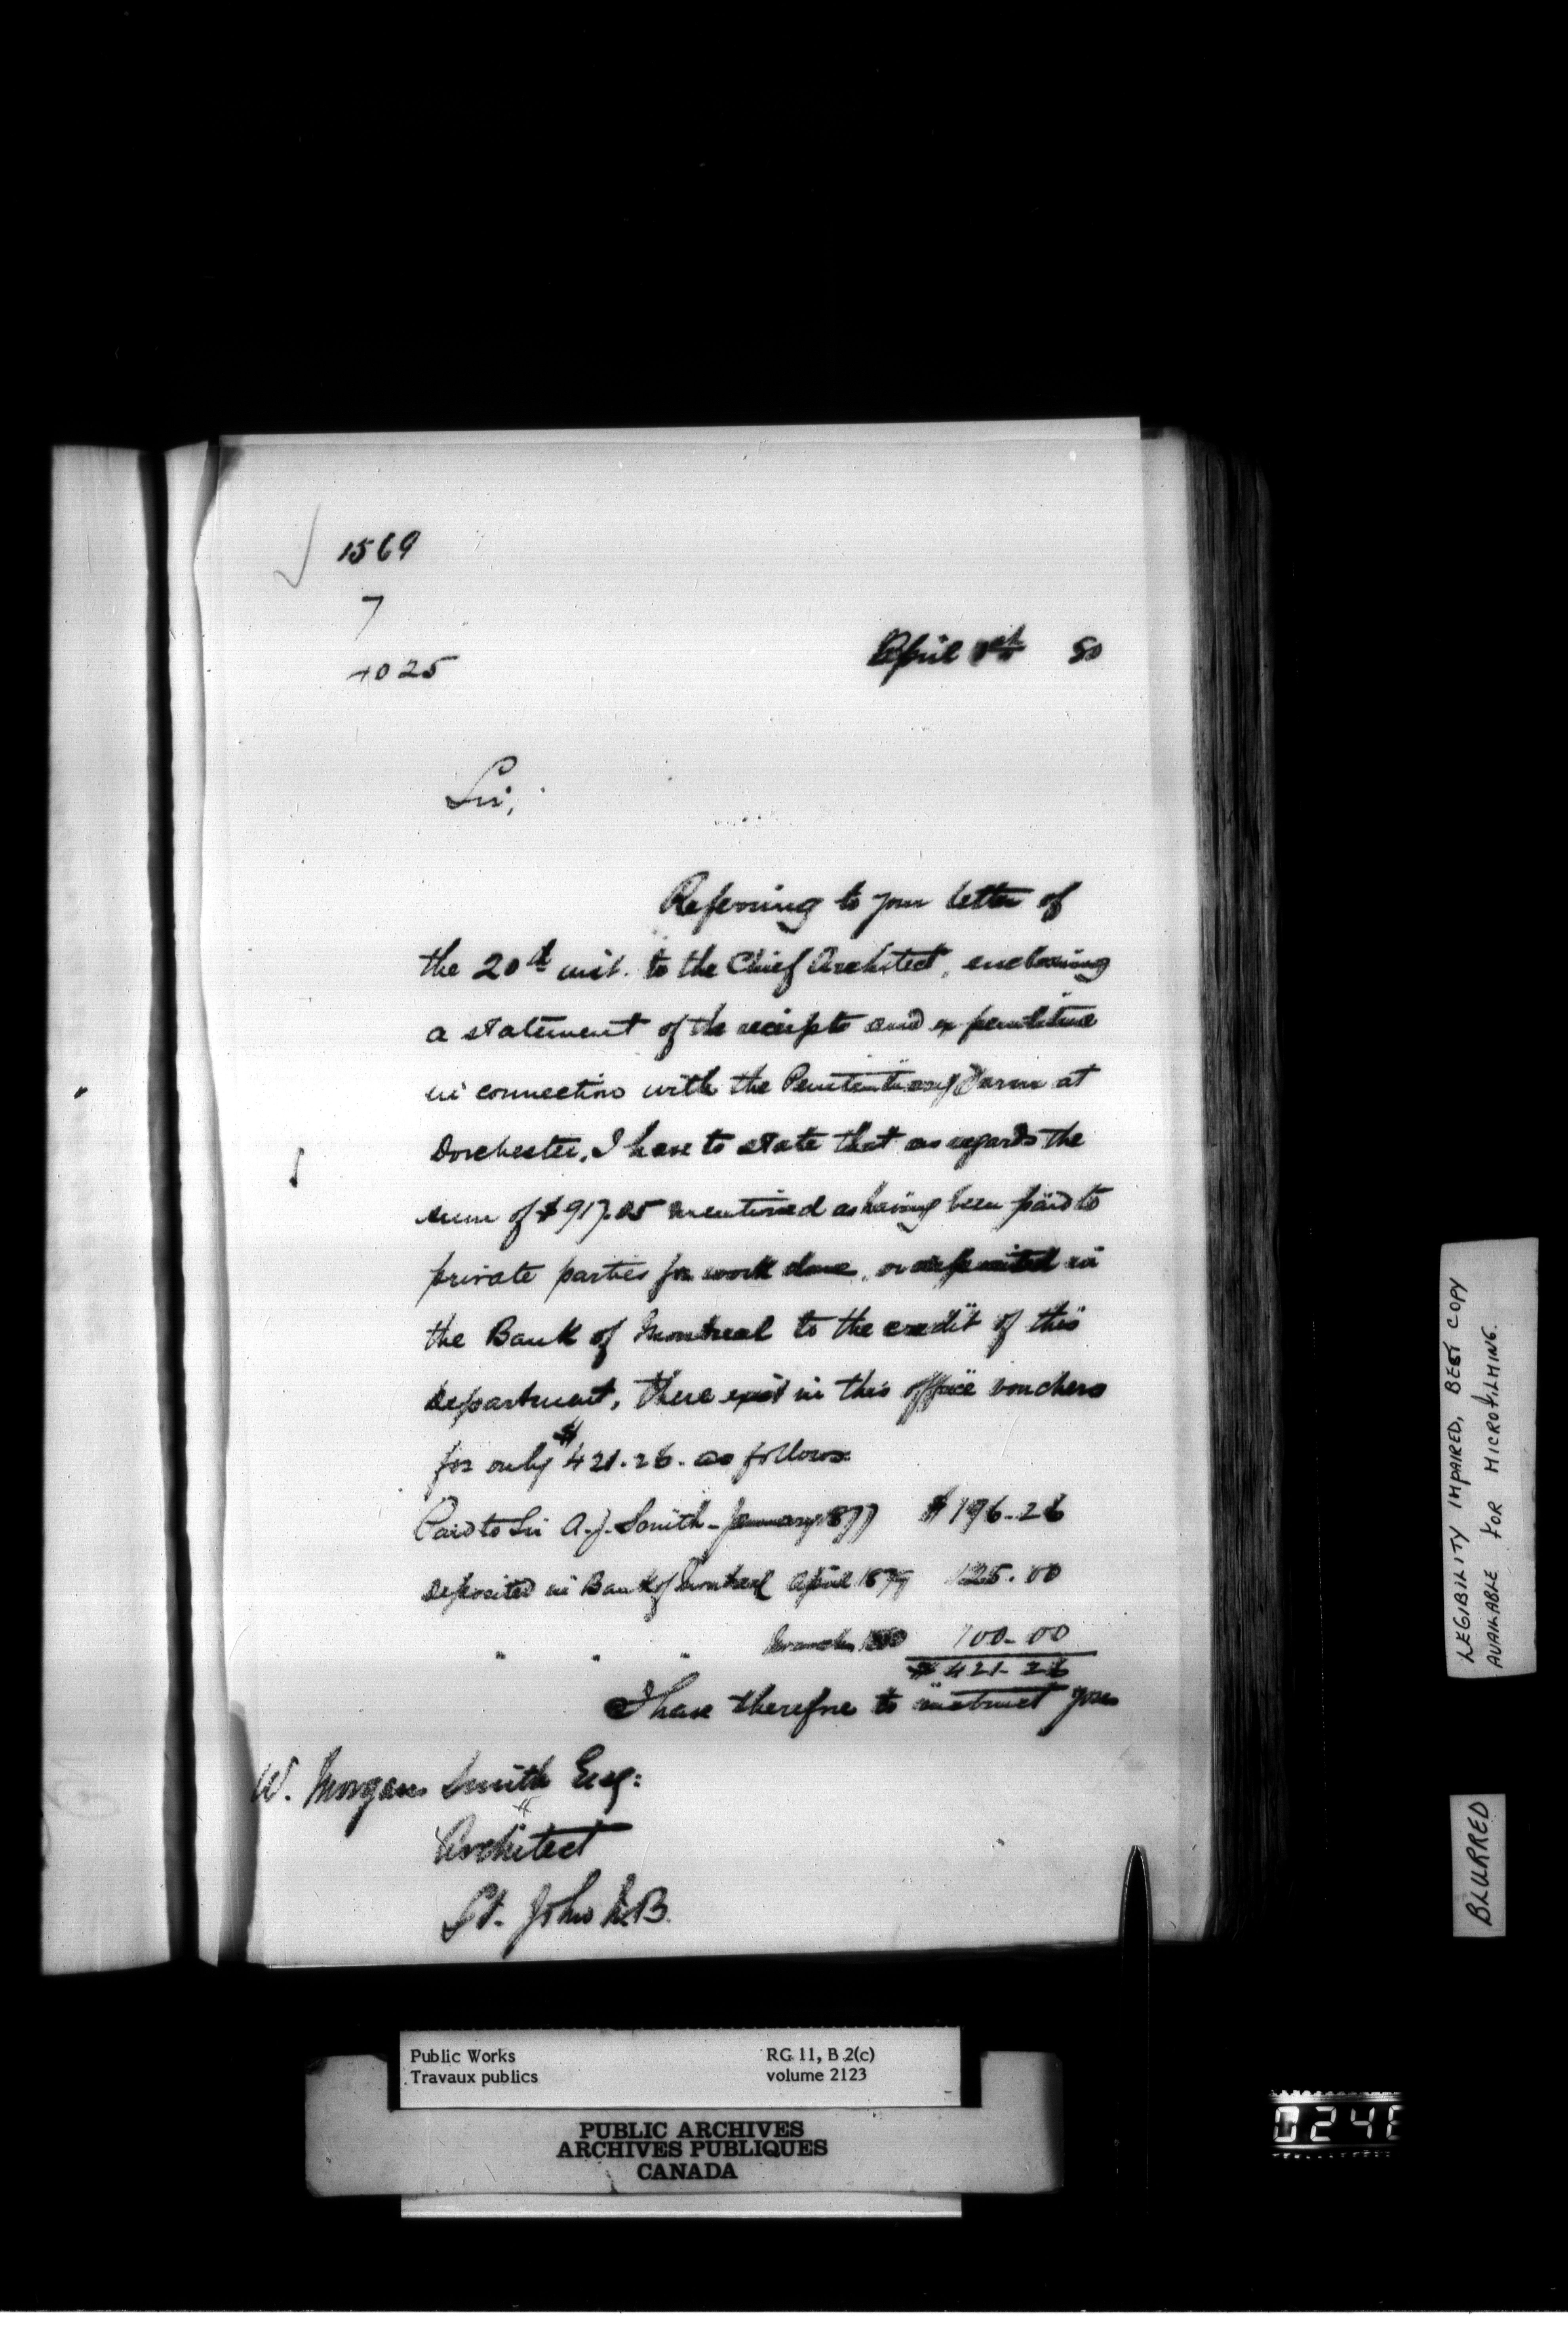 1569
7
4025
April 1st 80
Sir,
Referring to your letter of
the 20th ult. to the Chief Architect, enclosing
a statement of the receipts and expenditure
in connection with the Penitentiary Farm at
Dorchester, I have to state that as regards the
sum of $917.05 mentioned as having been paid to
private parties for work done, or deposited in
the Bank of Montreal to the credit of this
department, there exist in this office vouchers
for only $421.26. as follows.
Paid to Sir A.J. Smith - January 1877 $196-26
Deposited in Bank of Montreal April 1879 125.00
" " " March 1880 100-00
$421-26
I have therefore to instruct you
W. Morgan Smith Esq:
Architect
St. John N.B.
LEGIBILITY IMPAIRED, BEST COPY
AVAILABLE FOR MICROFILMING.
BLURRED
Public Works RG 11, B 2(c)
Travaux publics volume 2123
PUBLIC ARCHIVES
ARCHIVES PUBLIQUES
CANADA